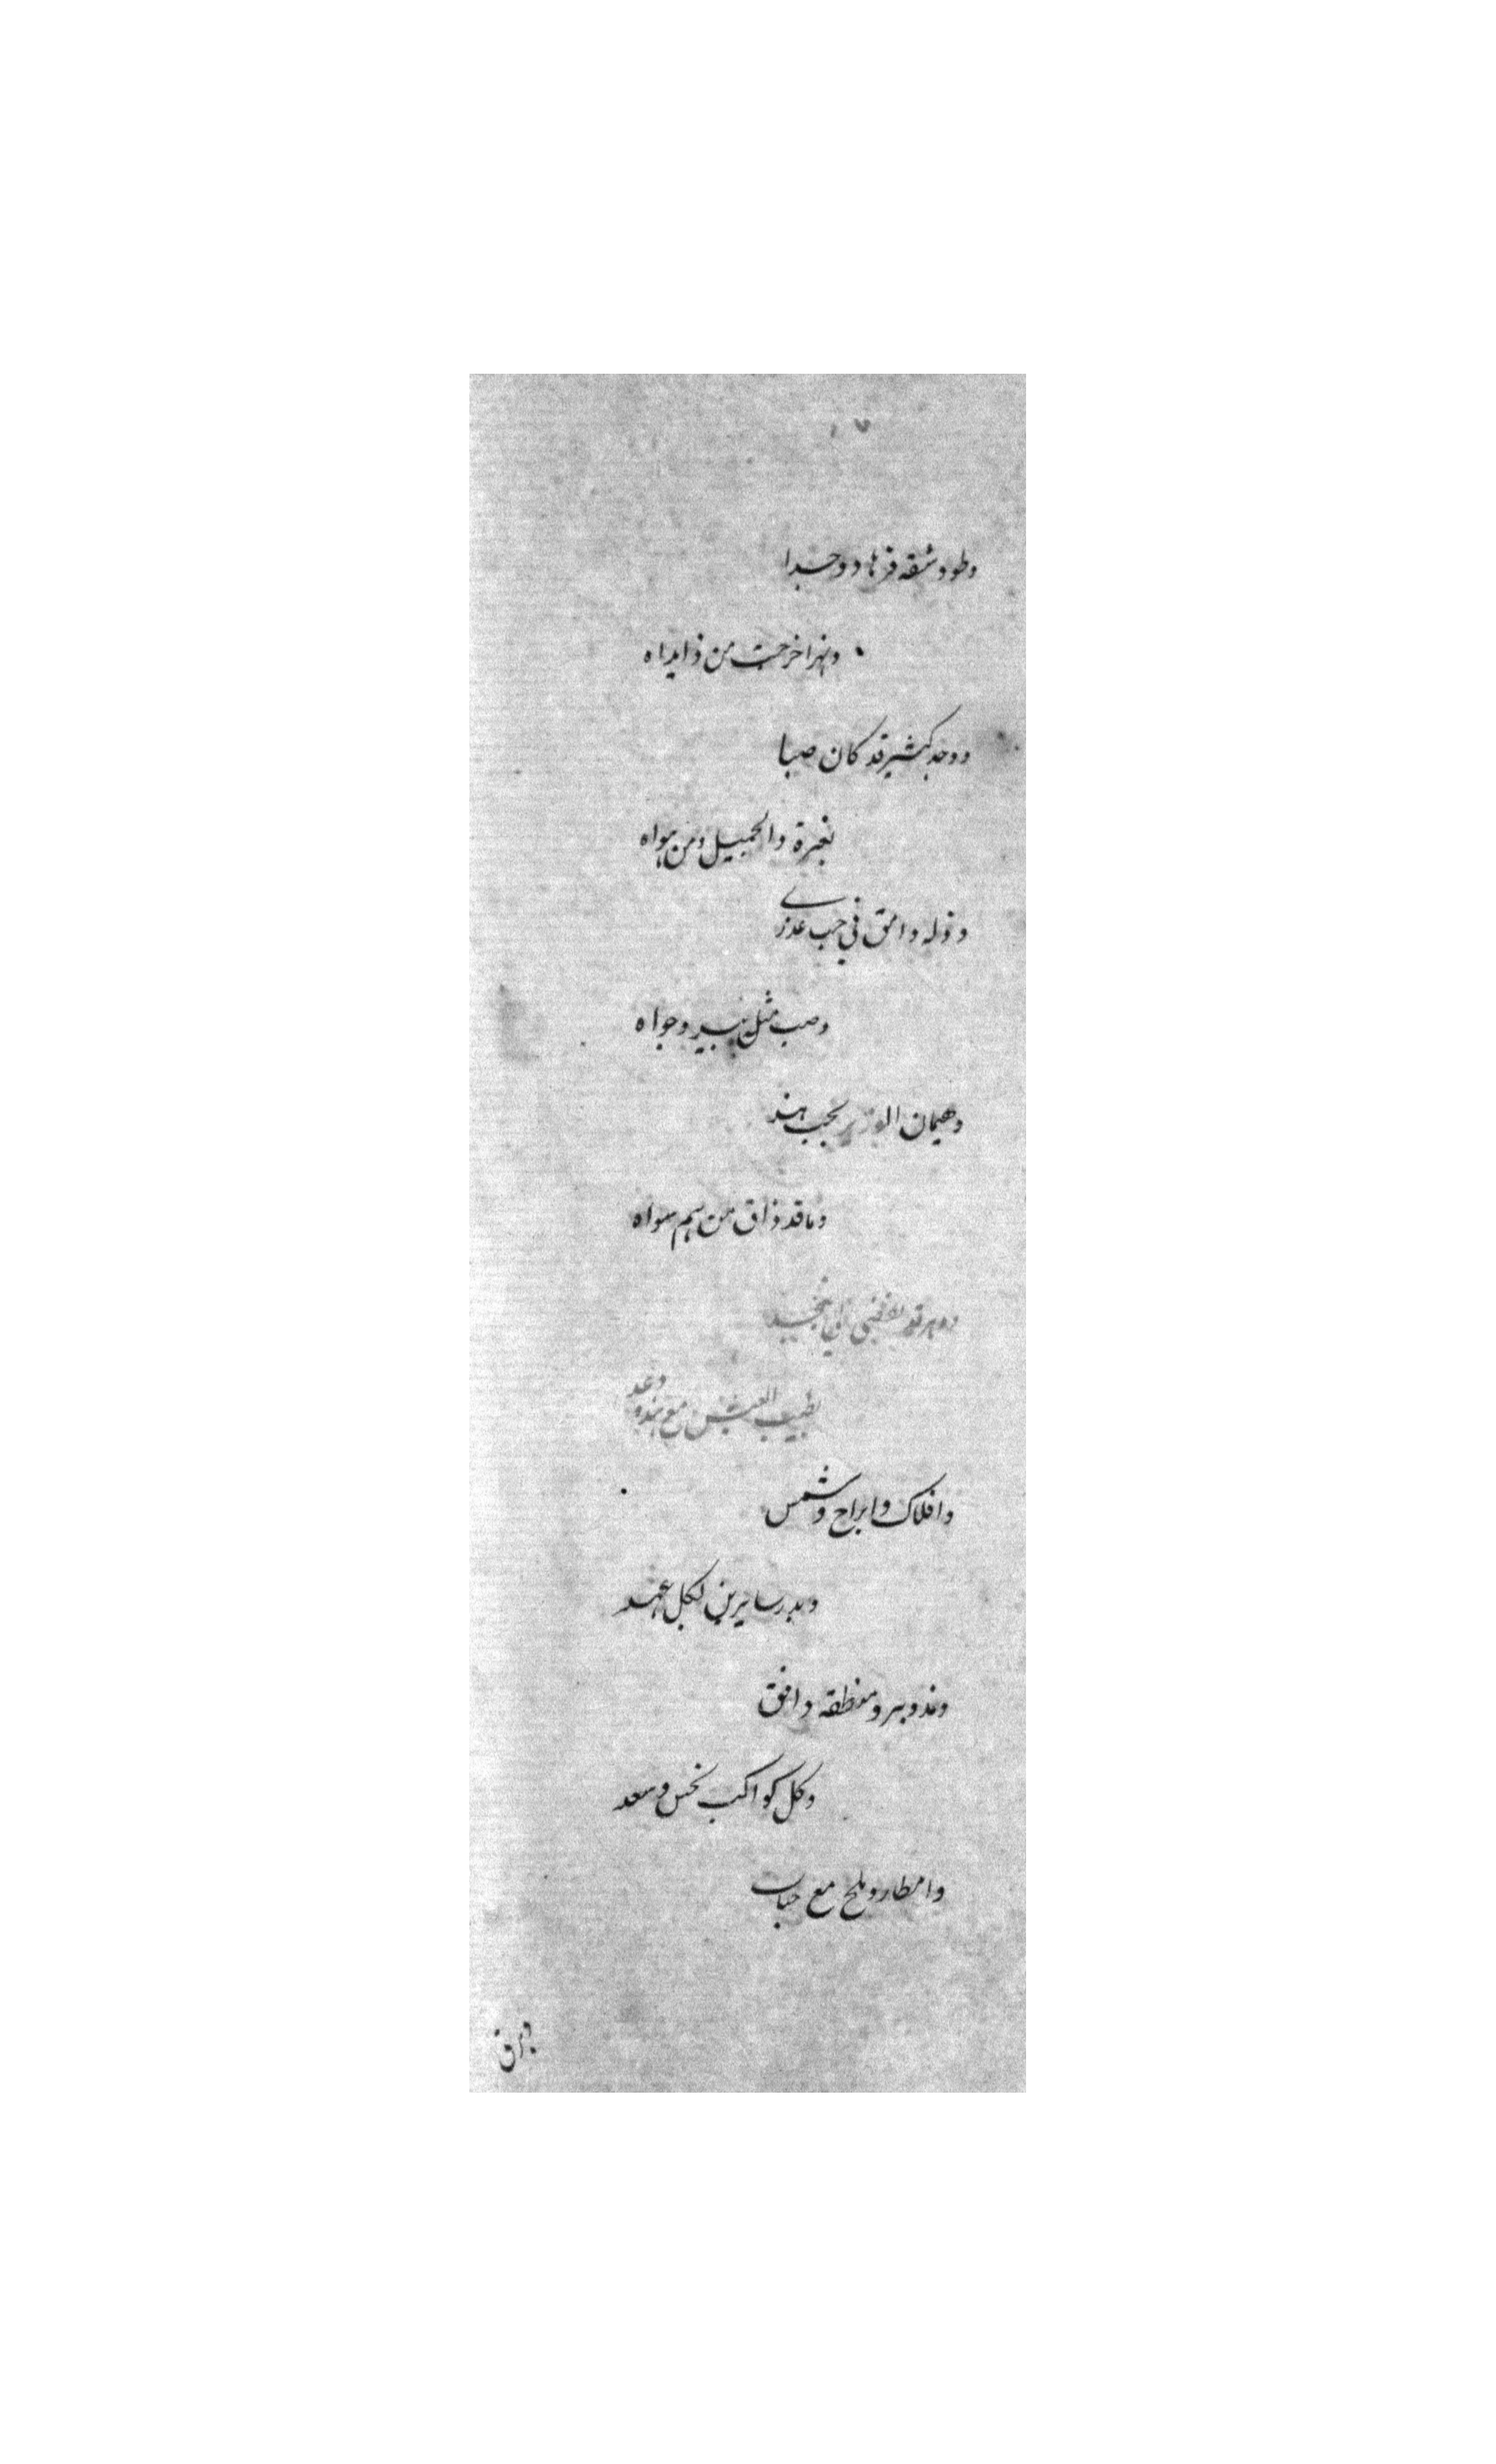 وطود شقه فرهاد وجدا
ونهر اخرجت من ذا يداه
ووجد كثير قد كان صبا
بعزة والجميل ومن هواه
ووله وامق في حب عذرى
وصب مثل بشير وجواه
وهيمان الوزير بحب هند
وما قد ذاق من هم سواه
بطيب العيش مع هند ودعد
وافلاك وابراج وشمس
وبدر سايرين لكل عهد
ومنطقه وافق
وكل كواكب نحس وسعد
وامطار وملح مع حباب
وبرق